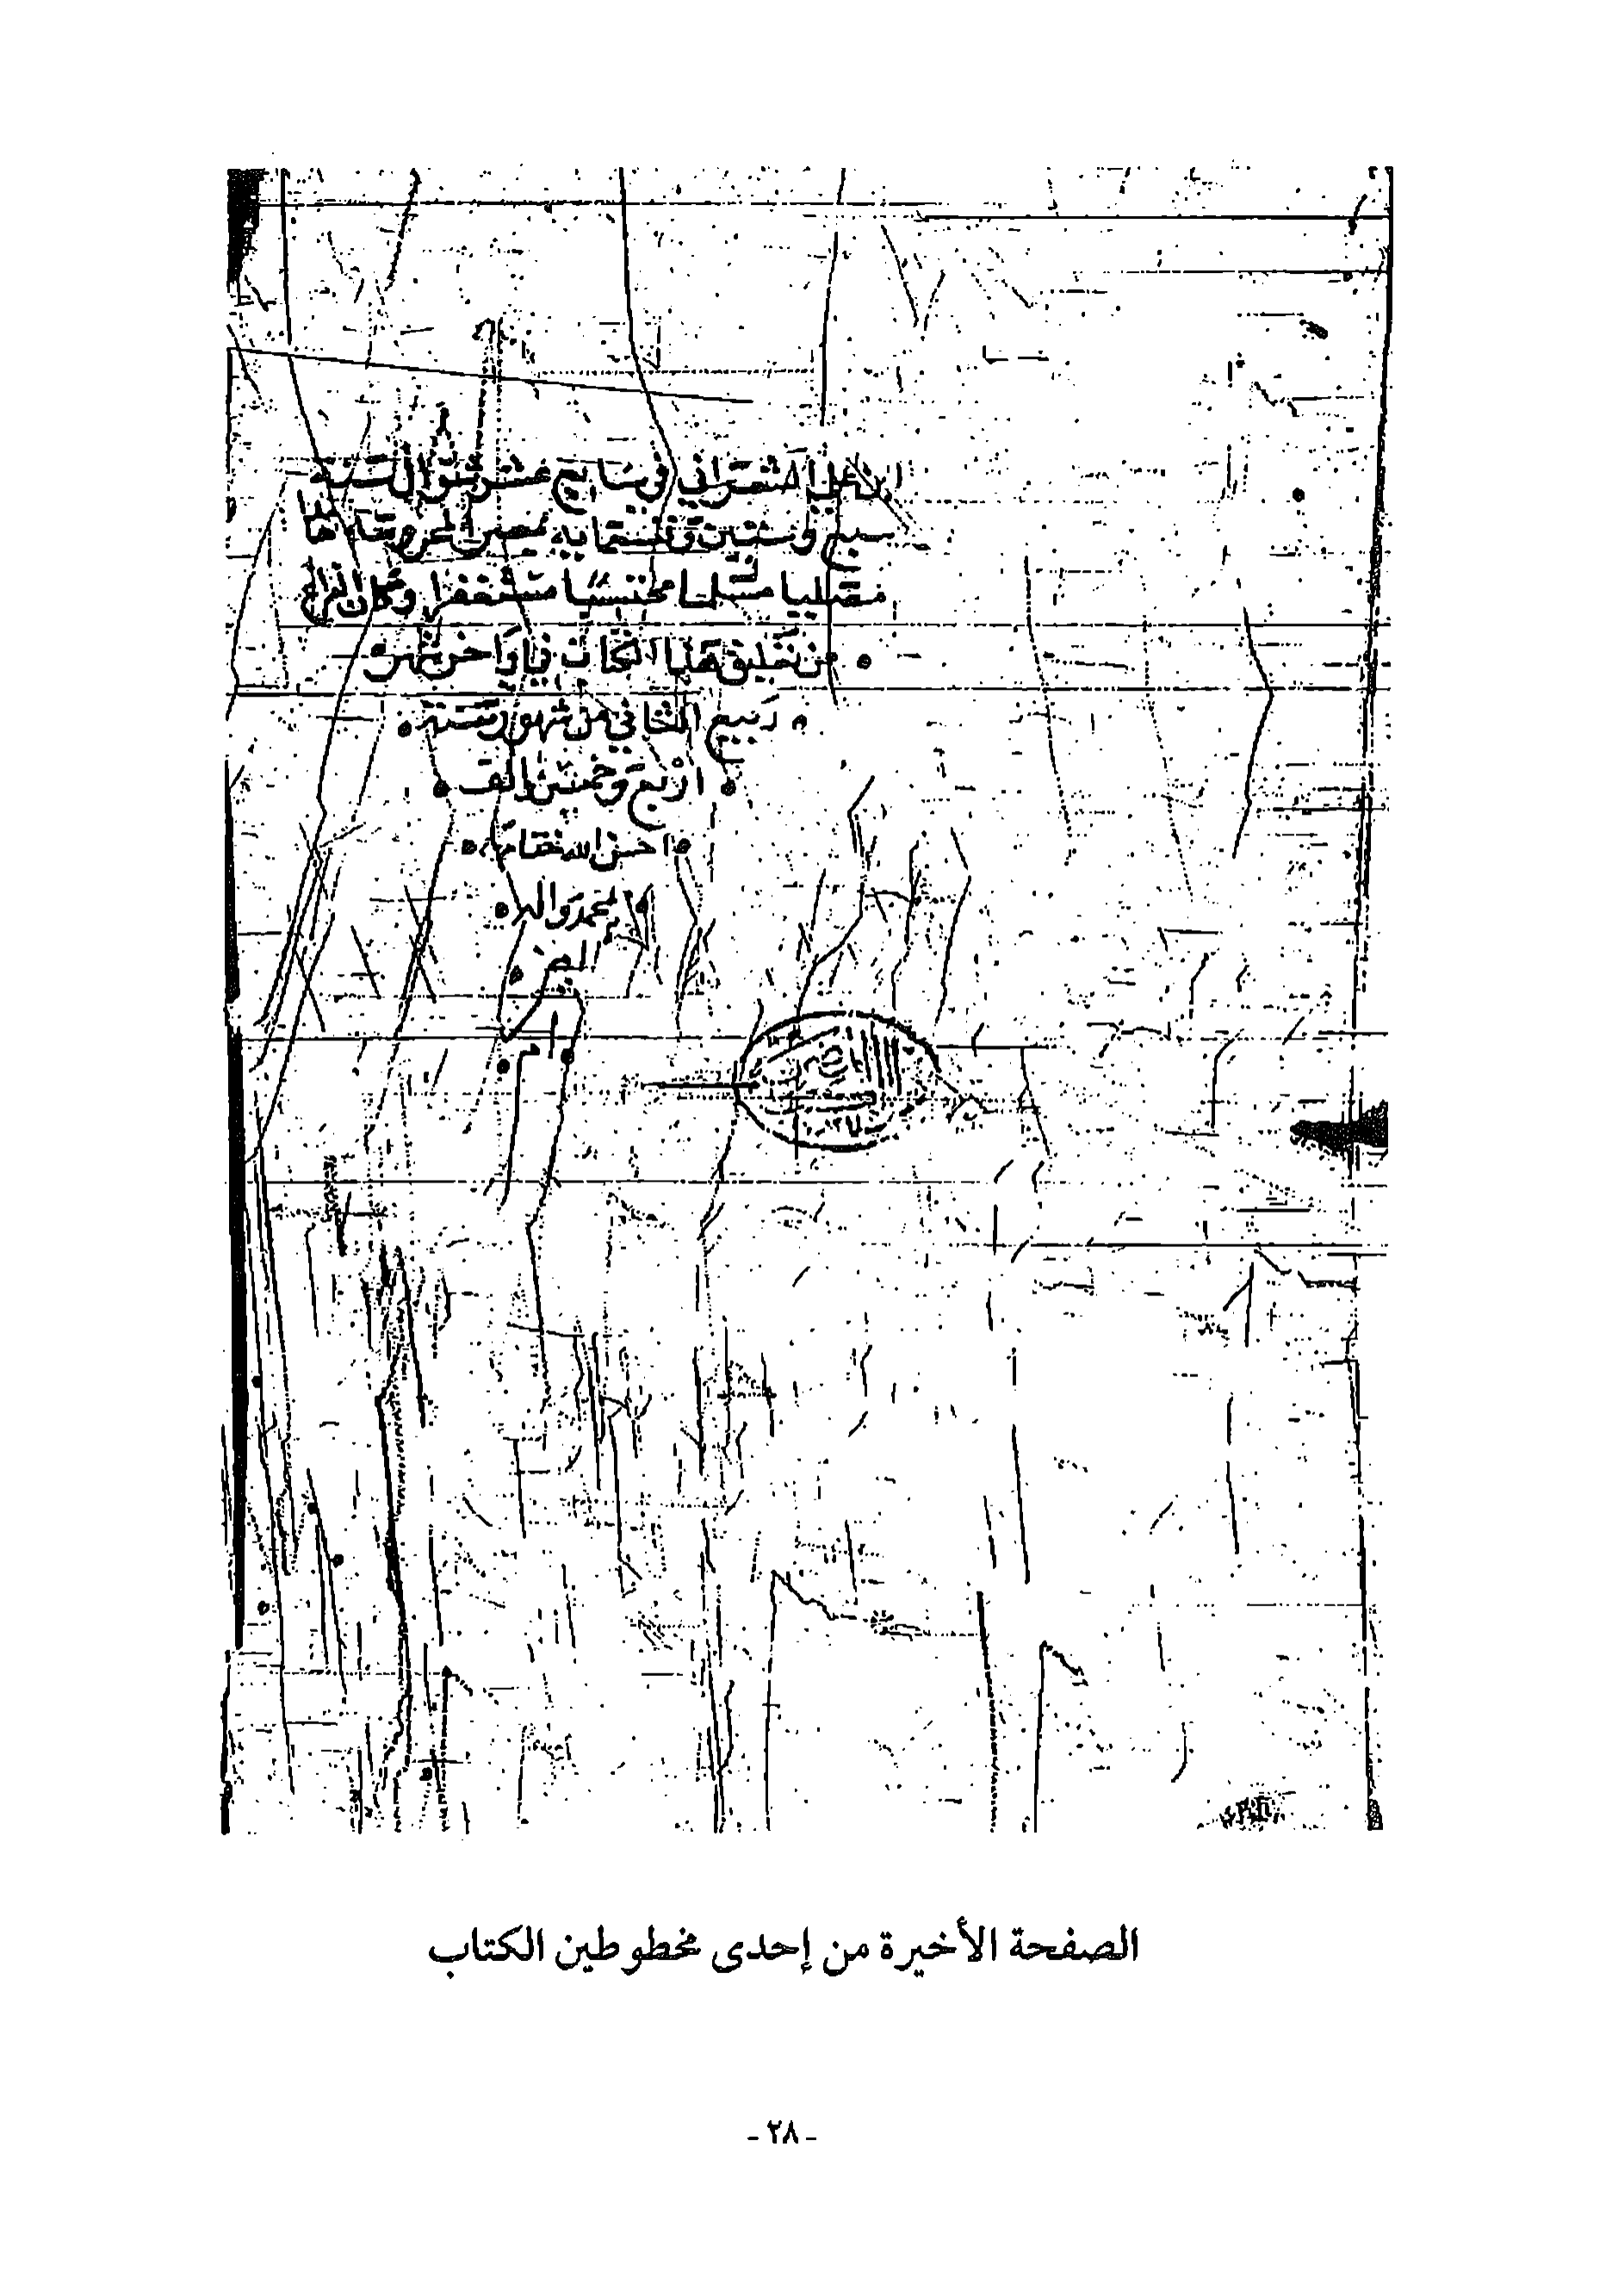 ابن علي الشعراني في سابع عشر شوال سنة
سبع وستين وتسعمايه بمصر المحروسة حامدا
مصليا مسلما محتسبا مستغفرا وكان الفراغ
من تعليق هذا الكتاب في اواخر شهر
ربيع الثاني من شهور سنة
اربع وخمسين والف
احسن الله ختامها
بمحمد واله
امين
الصفحة الأخيرة من إحدى مخطوطين الكتاب
- ٢٨ -